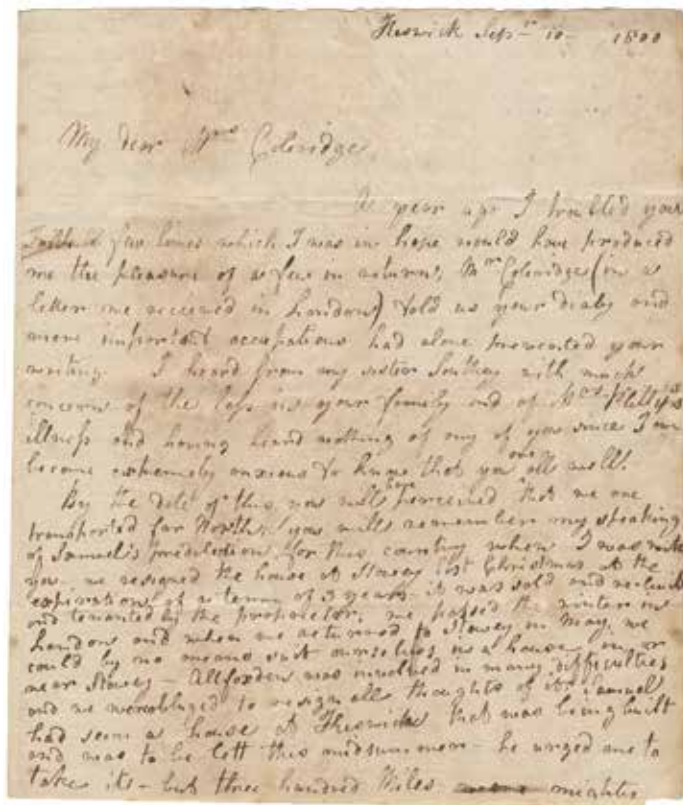 Keswick Sepr 10 - 1800
My dear Mrs Coleridge,
A year ago I troubled you
with a few lines which I was in hope would have produced
me the pleasure of a few in return; Mr Coleridge (in a
letter we received in London) told us your daily and
more important occupations had alone prevented your
writing. I heard from my sister Southey with much
concern of the loss in your family and of Mrs
illness and having heard nothing of any of you since I am
become extremely anxious to know that you are all well.
By the date of this you will have perceived that we are
transported far North; you will remember my speaking
of Samuel's predilection for this country when I was with
you. we resigned the house at Stowey last Christmas at the
expiration of a term of 3 years - it was sold and
and tenanted by the proprietor, we passed the winter in
London and when we returned to Stowey in May, we
could by no means suit ourselves in a house, in or
near Stowey - Allfoxden was involved in many difficulties
and we were obliged to resign all thoughts of it. Samuel
had seen a house at Keswick that was being built
and was to be lett this midsummer - he urged me to
take it - but three hundred Miles might